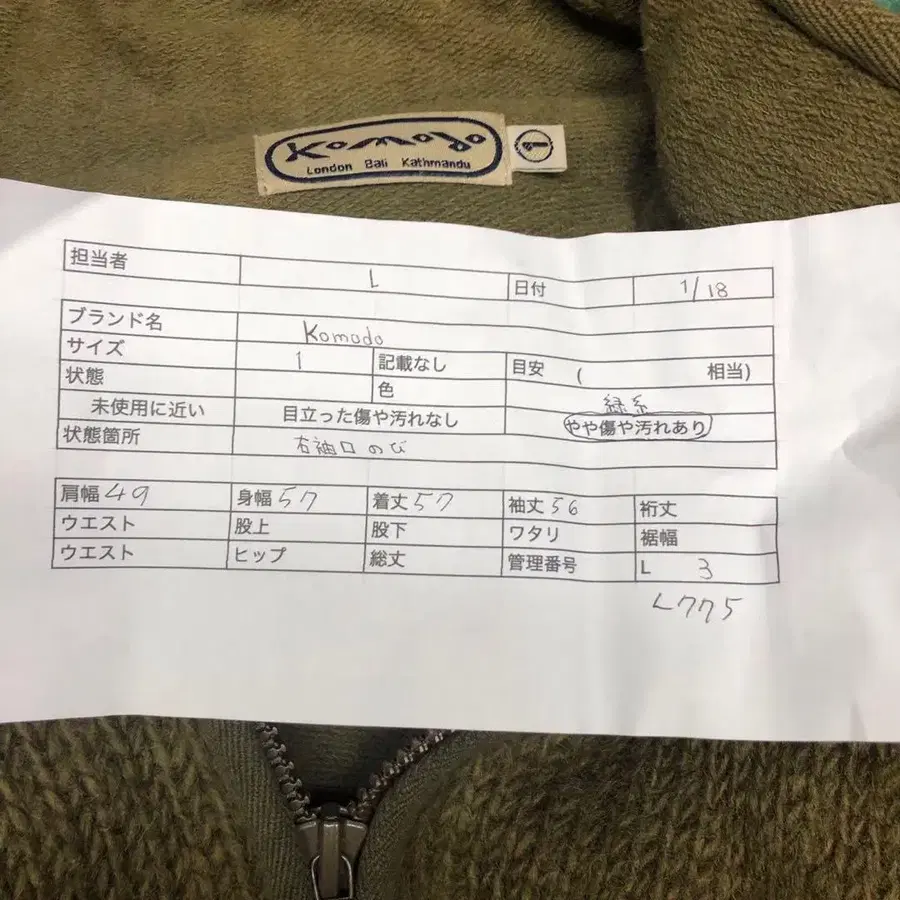 Komodo
London Bali Kathmandu
1
担当者 L 日付 1/18
ブランド名 Komodo
サイズ 1 記載なし 目安 ( 相当)
状態 色 緑系
未使用に近い 目立った傷や汚れなし やや傷や汚れあり
状態箇所 右袖口のび
肩幅 49 身幅 57 着丈 57 袖丈 56 裄丈
ウエスト 股上 股下 ワタリ 裾幅
ウエスト ヒップ 総丈 管理番号 L 3
L775